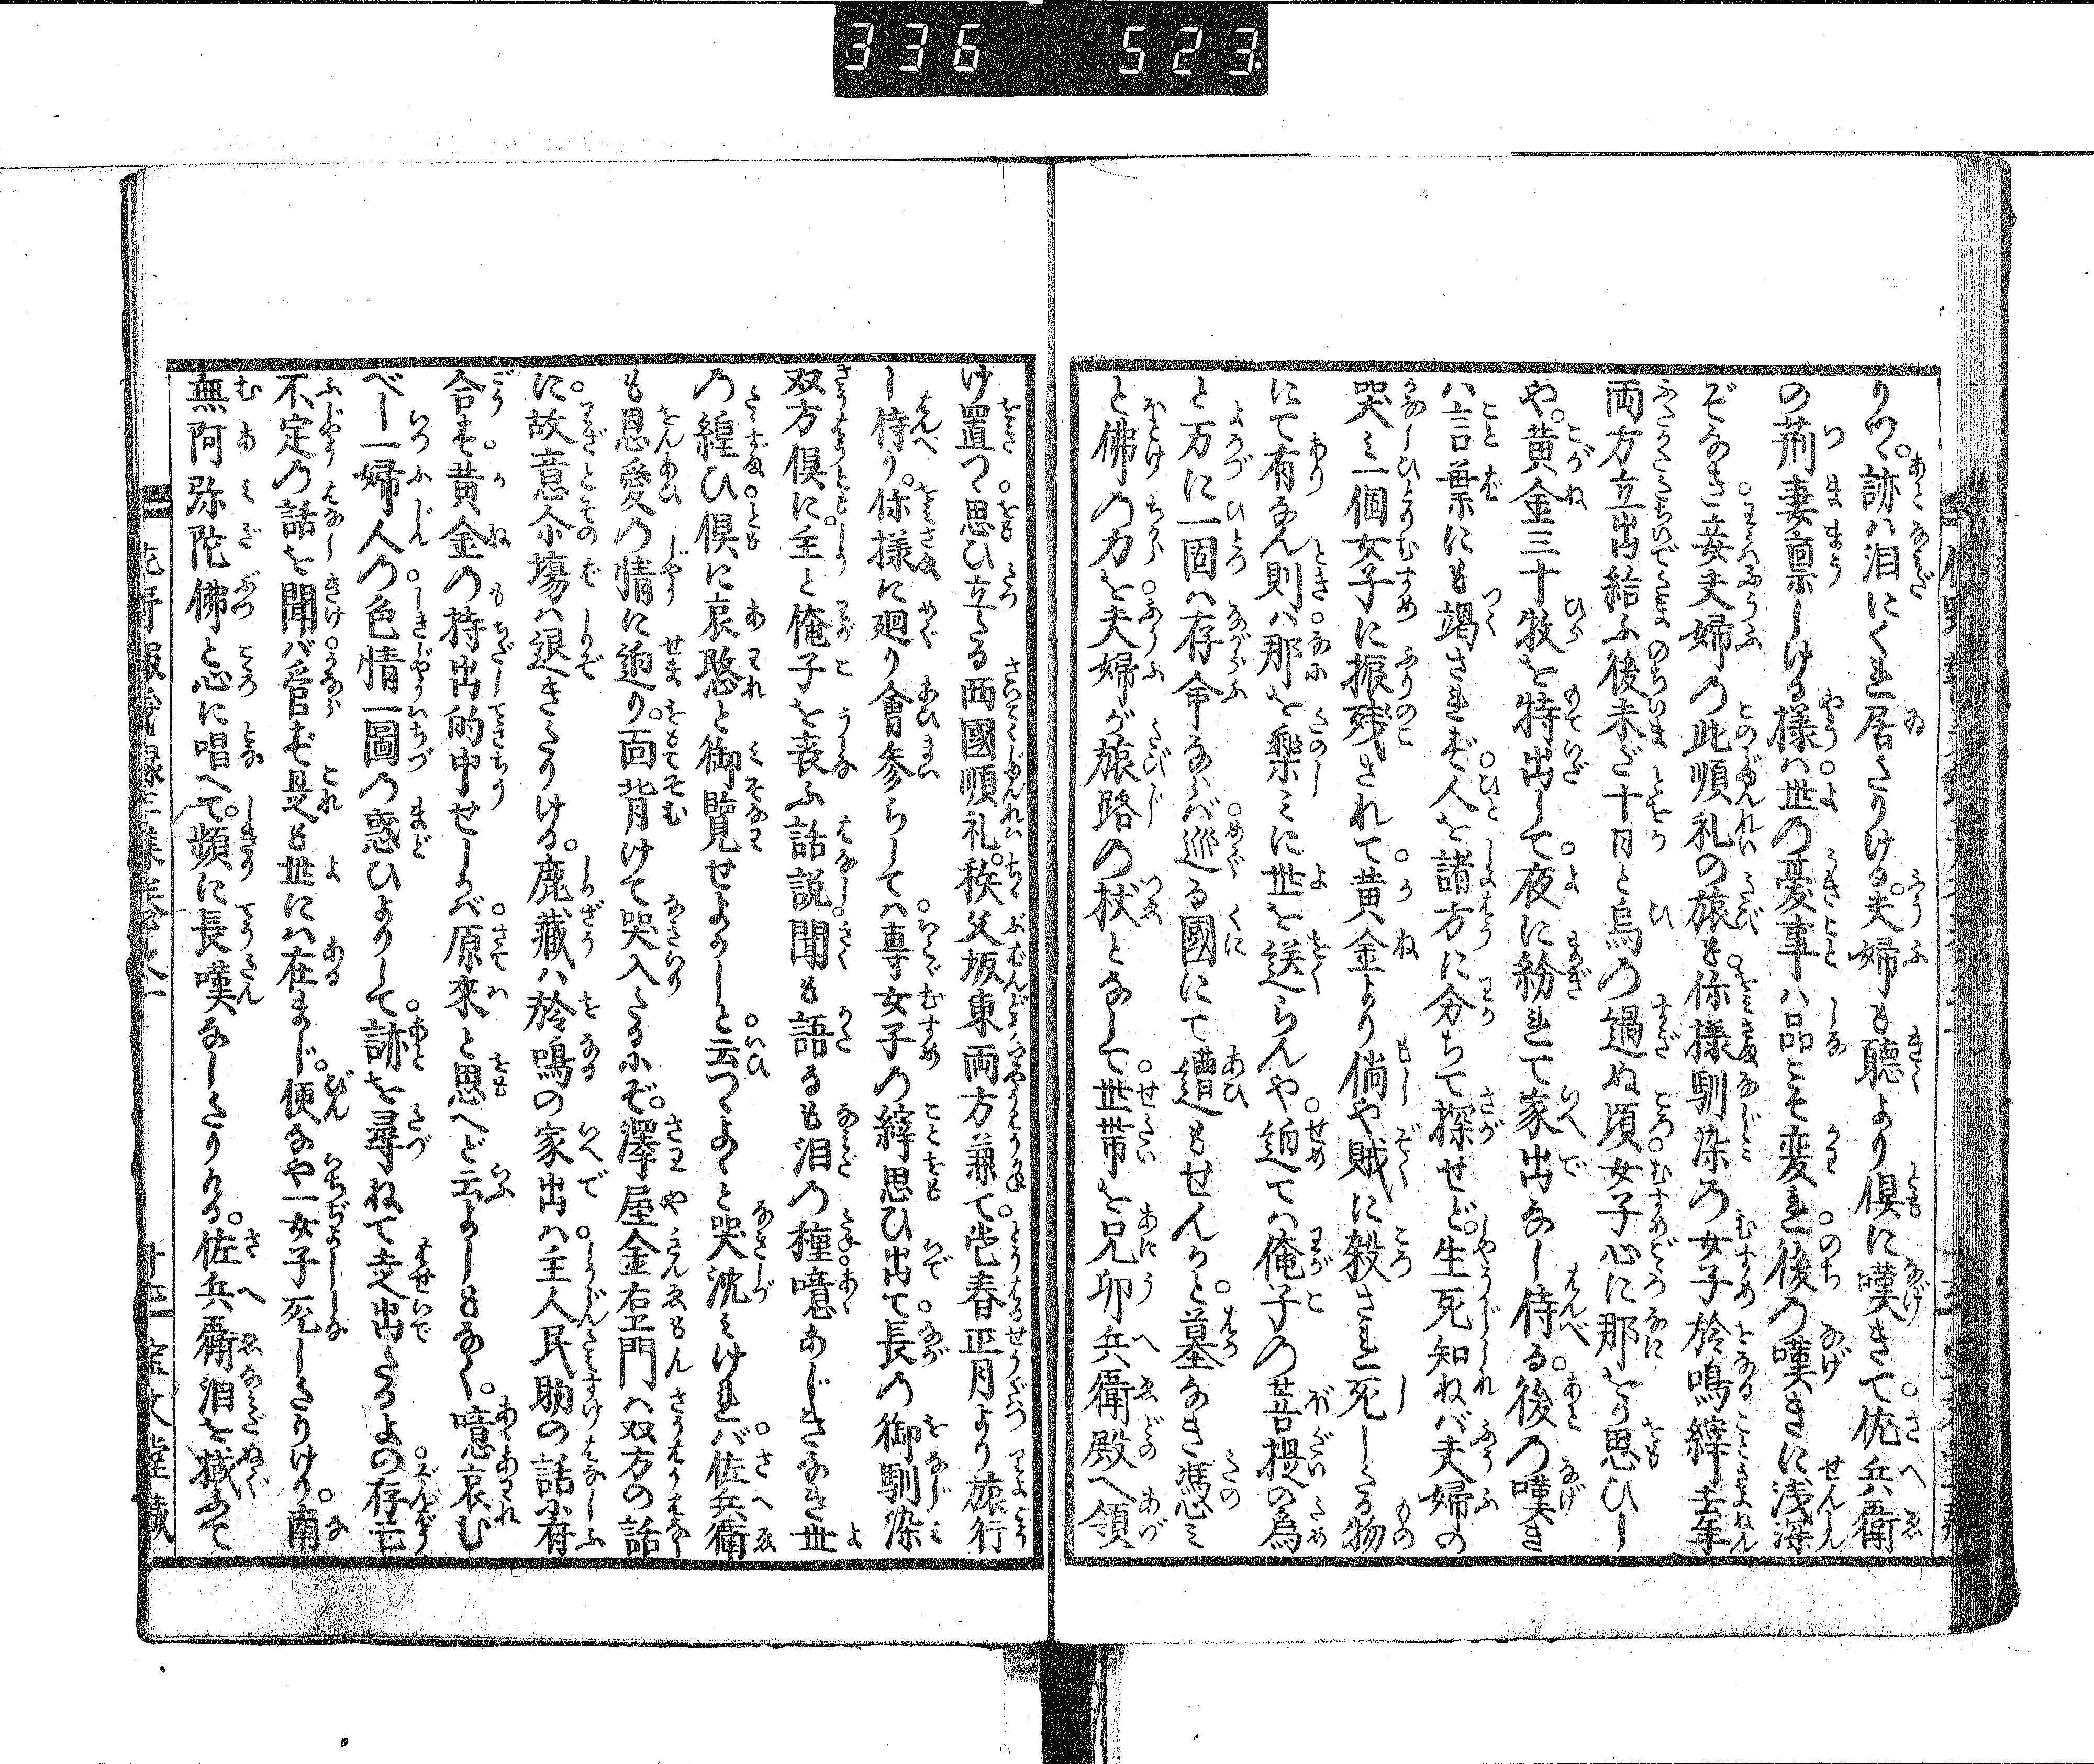 336 523
りつ。跡ハ泪にくれ居たりける。夫婦も聴より倶に嘆きて佐兵衛
の荊妻禀しける様ハ世の憂事ハ品こそ変れ後の嘆きに浅深
ぞなき妾夫婦の此順礼の旅も。你様馴染の女子於鳴縡去年
両方立出給ふ後未ダ十日と烏の過ぬ頃女子心に那とり思ひし
や。黄金三十枚を持出して夜に紛れて家出なし侍る。後の嘆き
ハ言葉にも竭されず人を諸方に分ちて探せど。生死知ねバ夫婦の
哭ミ一個女子に振残されて黄金より倘や賊に殺され死したる物
にて有なん則ハ那を楽ミに世を送らんや迫てハ俺子の菩提の為
と万に一固ハ存命なバ巡る國にて遭もせんかと。墓なき憑ミ
と佛の力を夫婦ガ旅路の杖となして世帯を兄卯兵衛殿へ領
け置つ思ひ立たる西國順礼。秩父坂東両方兼て。当春正月より旅行
し侍り。你様に廻り會参らしてハ専女子の縡思ひ出て長の御馴染
双方倶に。主と俺子を喪ふ話説聞も語るも泪の種噫あじきなき世
の縨ひ倶に哀愍と御覧せよかしと云つゝよゝと哭沈ミけれバ佐兵衛
も恩愛の情に迫り。面背けて哭入たるにぞ。澤屋金右エ門ハ双方の話
に。故意余塲ハ退きたりける。鹿蔵ハ於鳴の家出ハ主人民助の話に府
合す。黄金の持出的中せしかバ原来と思へど云よしもなく。噫哀む
べし一婦人の色情一圖の惑ひよりして。跡を尋ねて走出たるよの存亡
不定の話を聞バ管ず是も世にハ在まじ。便なや一女子死したりけり。南
無阿弥陀佛と心に唱へて。頻に長嘆なしたりける。佐兵衛泪を掻ふて